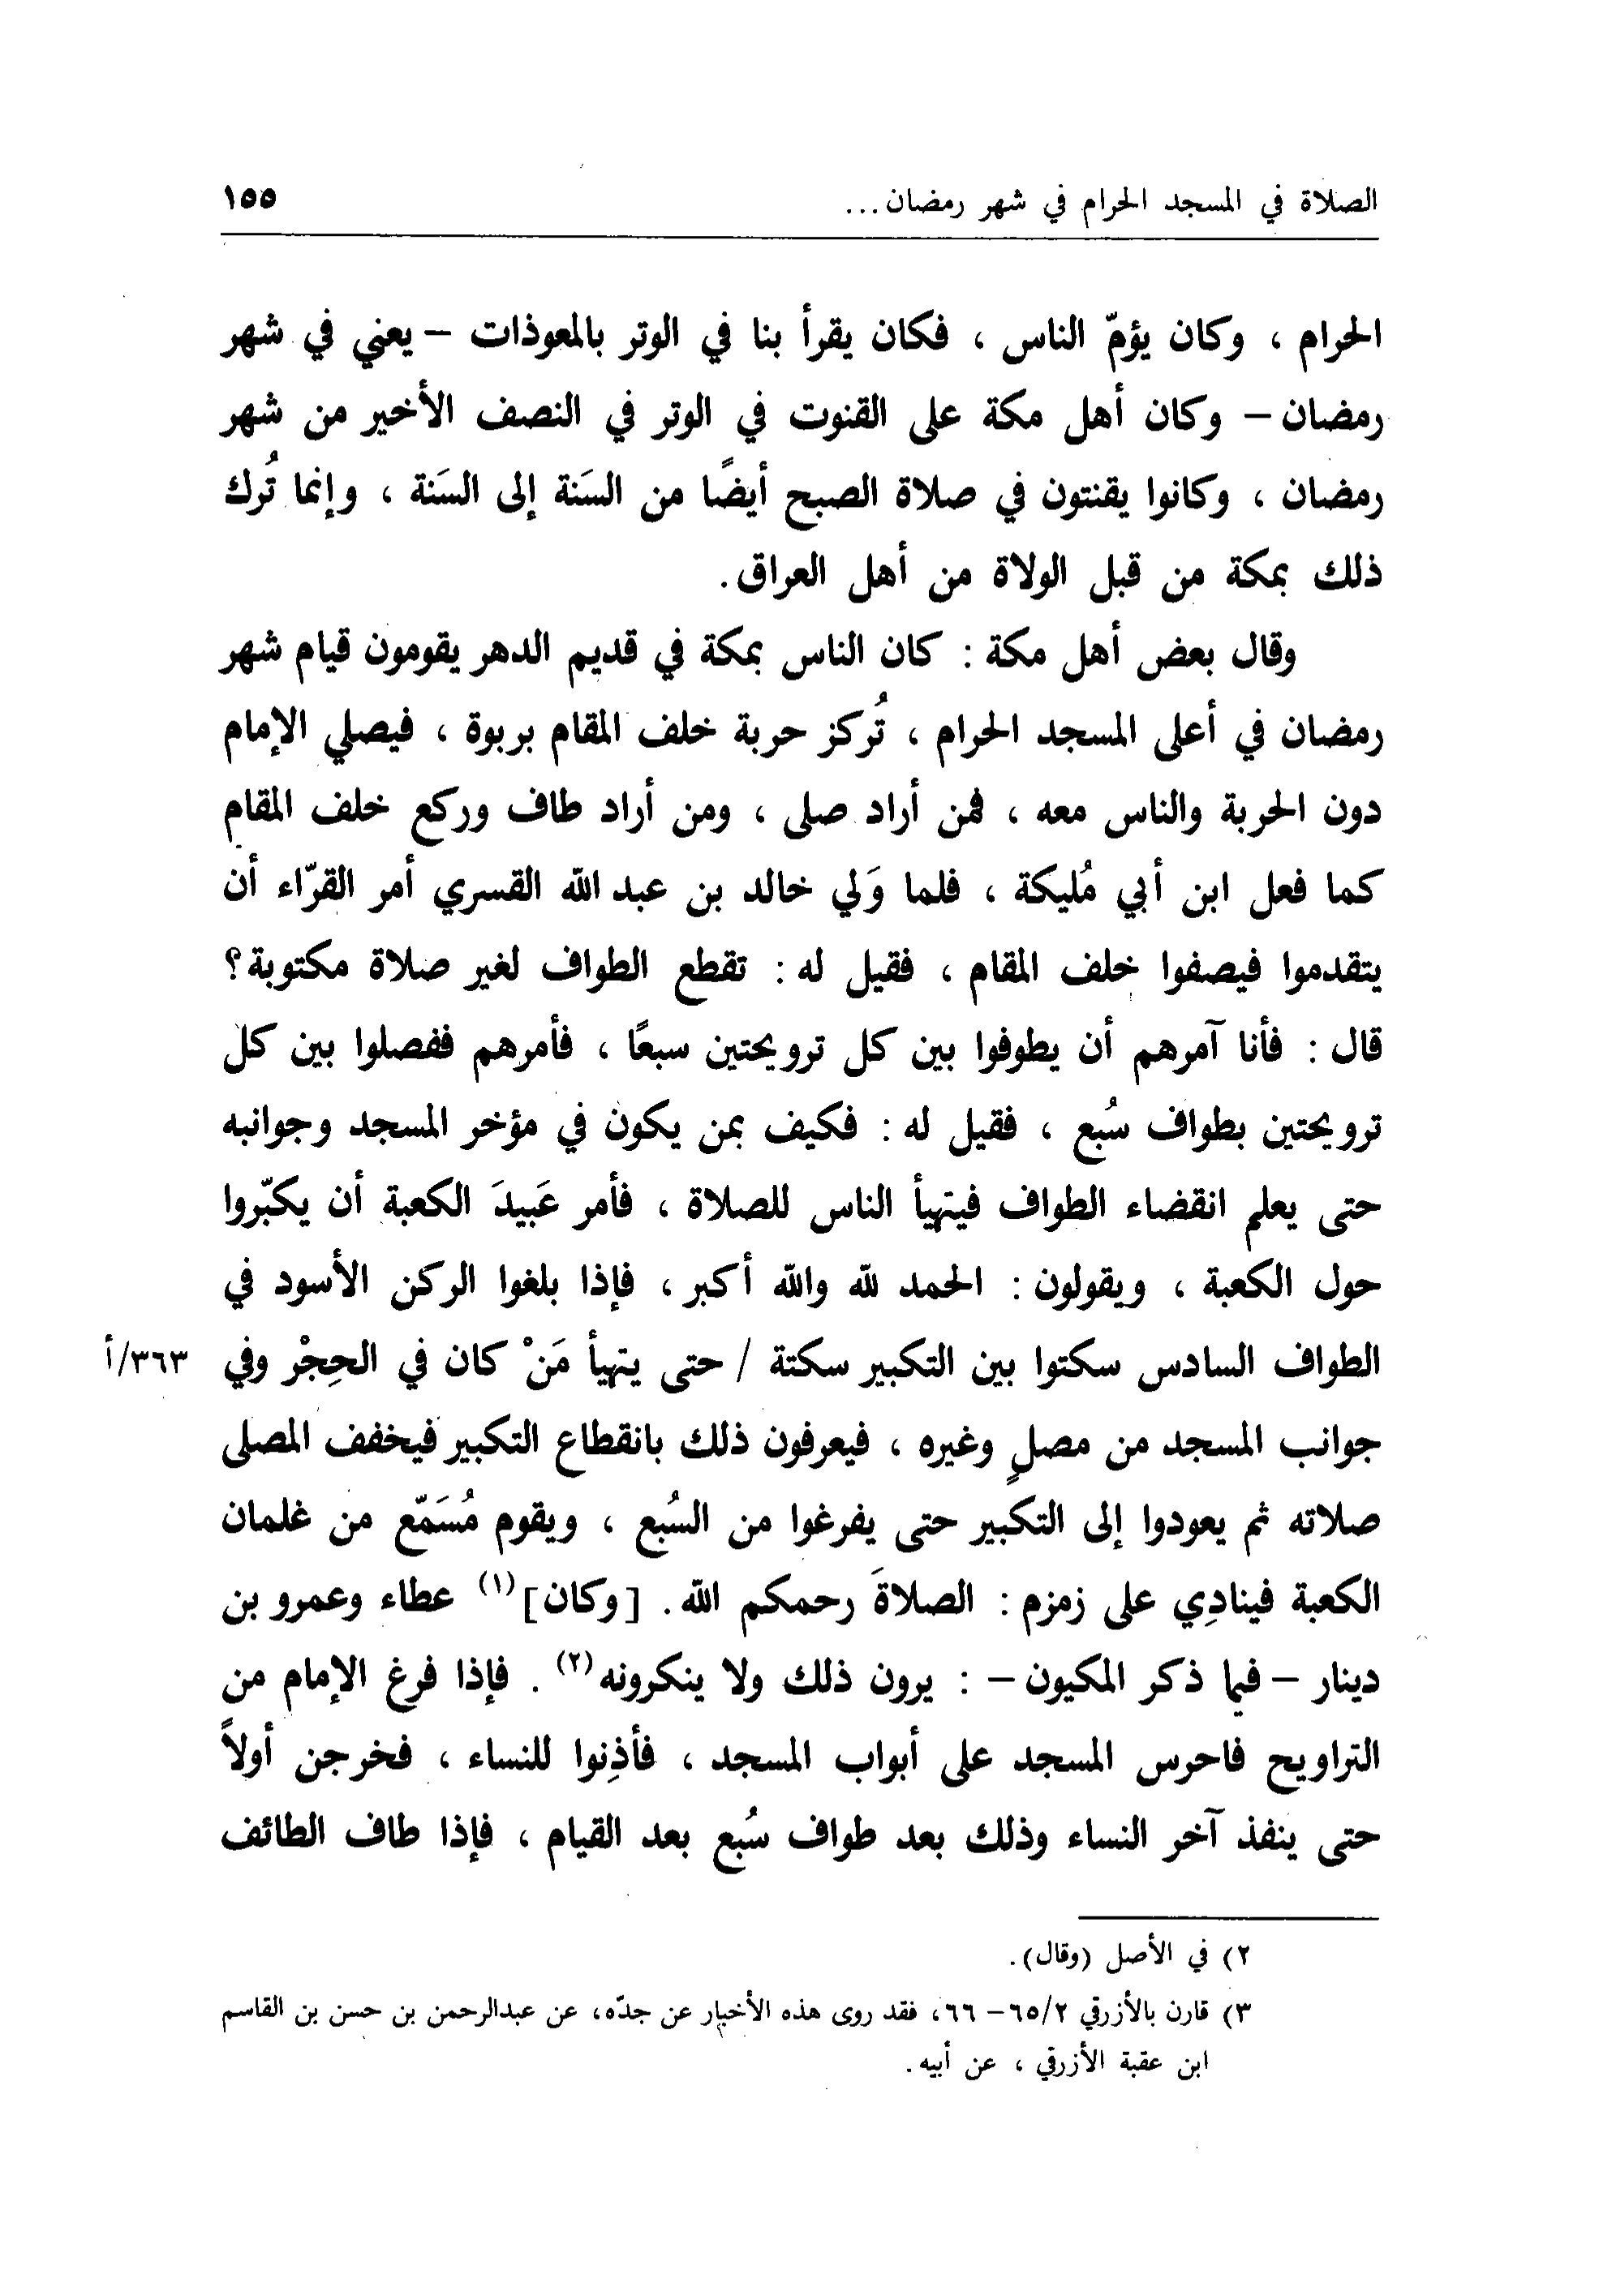 الصلاة في المسجد الحرام في شهر رمضان... ١٥٥
الحرام ، وكان يؤمّ الناس ، فكان يقرأ بنا في الوتر بالمعوذات – يعني في شهر
رمضان – وكان أهل مكة على القنوت في الوتر في النصف الأخير من شهر
رمضان ، وكانوا يقنتون في صلاة الصبح أيضًا من السَنة إلى السَنة ، وإنما تُرك
ذلك بمكة من قبل الولاة من أهل العراق.
وقال بعض أهل مكة : كان الناس بمكة في قديم الدهر يقومون قيام شهر
رمضان في أعلى المسجد الحرام ، تُركز حربة خلف المقام بربوة ، فيصلي الإمام
دون الحربة والناس معه ، فمن أراد صلى ، ومن أراد طاف وركع خلف المقام
كما فعل ابن أبي مُليكة ، فلما وَلي خالد بن عبد الله القسري أمر القرّاء أن
يتقدموا فيصفوا خلف المقام ، فقيل له : تقطع الطواف لغير صلاة مكتوبة؟
قال : فأنا آمرهم أن يطوفوا بين كل ترويحتين سبعًا ، فأمرهم ففصلوا بين كل
ترويحتين بطواف سُبع ، فقيل له : فكيف بمن يكون في مؤخر المسجد وجوانبه
حتى يعلم انقضاء الطواف فيتهيأ الناس للصلاة ، فأمر عَبيدَ الكعبة أن يكبّروا
حول الكعبة ، ويقولون : الحمد لله والله أكبر ، فإذا بلغوا الركن الأسود في
الطواف السادس سكتوا بين التكبير سكتة / حتى يتهيأ مَنْ كان في الحِجْر وفي ٣٦٣/أ
جوانب المسجد من مصلٍ وغيره ، فيعرفون ذلك بانقطاع التكبير فيخفف المصلى
صلاته ثم يعودوا إلى التكبير حتى يفرغوا من السُبع ، ويقوم مُسَمّع من غلمان
الكعبة فينادِي على زمزم : الصلاةَ رحمكم الله. [وكان](١) عطاء وعمرو بن
دينار – فيما ذكر المكيون – : يرون ذلك ولا ينكرونه(٢) . فإذا فرغ الإمام من
التراويح فاحرس المسجد على أبواب المسجد ، فأذِنوا للنساء ، فخرجن أولاً
حتى ينفذ آخر النساء وذلك بعد طواف سُبع بعد القيام ، فإذا طاف الطائف
٢) في الأصل (وقال).
٣) قارن بالأزرقي ٦٥/٢ – ٦٦، فقد روى هذه الأخبار عن جدّه، عن عبدالرحمن بن حسن بن القاسم
ابن عقبة الأزرقي ، عن أبيه.